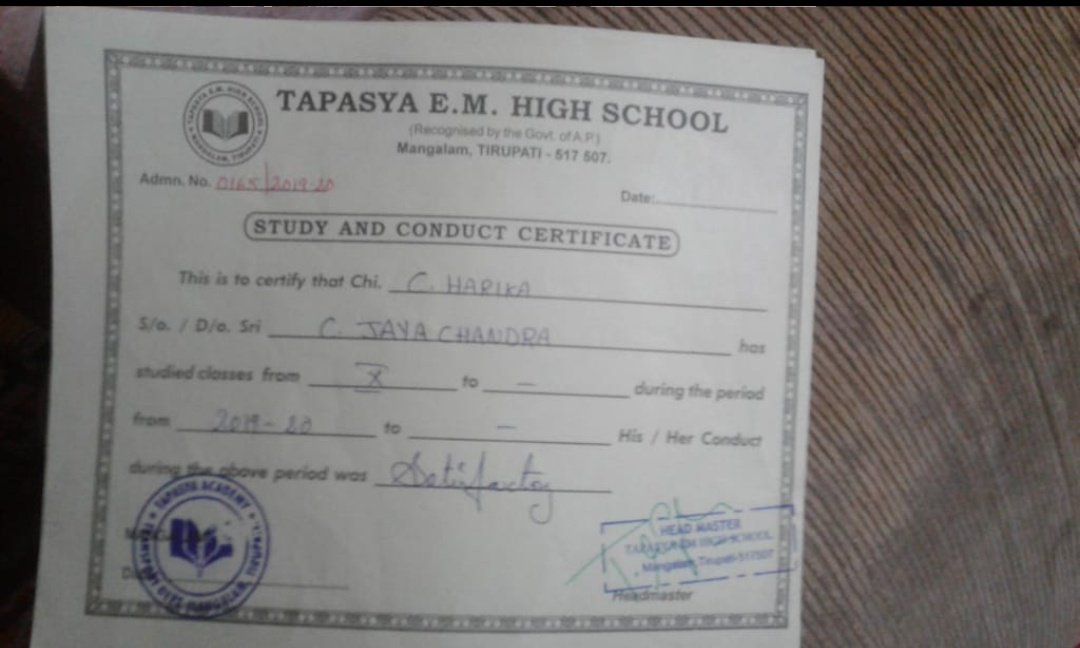 TAPASYA E.M. HIGH SCHOOL
(Recognised by the Govt. of A.P.)
Mangalam, TIRUPATI - 517 507.
Admn. No. 0165/2019-20
Date:
STUDY AND CONDUCT CERTIFICATE
This is to certify that Chi. C. HARIKA
S/o. / D/o. Sri C. JAYA CHANDRA has
studied classes from X to — during the period
from 2019-20 to — His / Her Conduct
during the above period was Satisfactory
TAPASYA ACADEMY
MANGALAM, TIRUPATI
HEAD MASTER
TAPASYA EM HIGH SCHOOL
Mangalam, Tirupati-517507
Headmaster